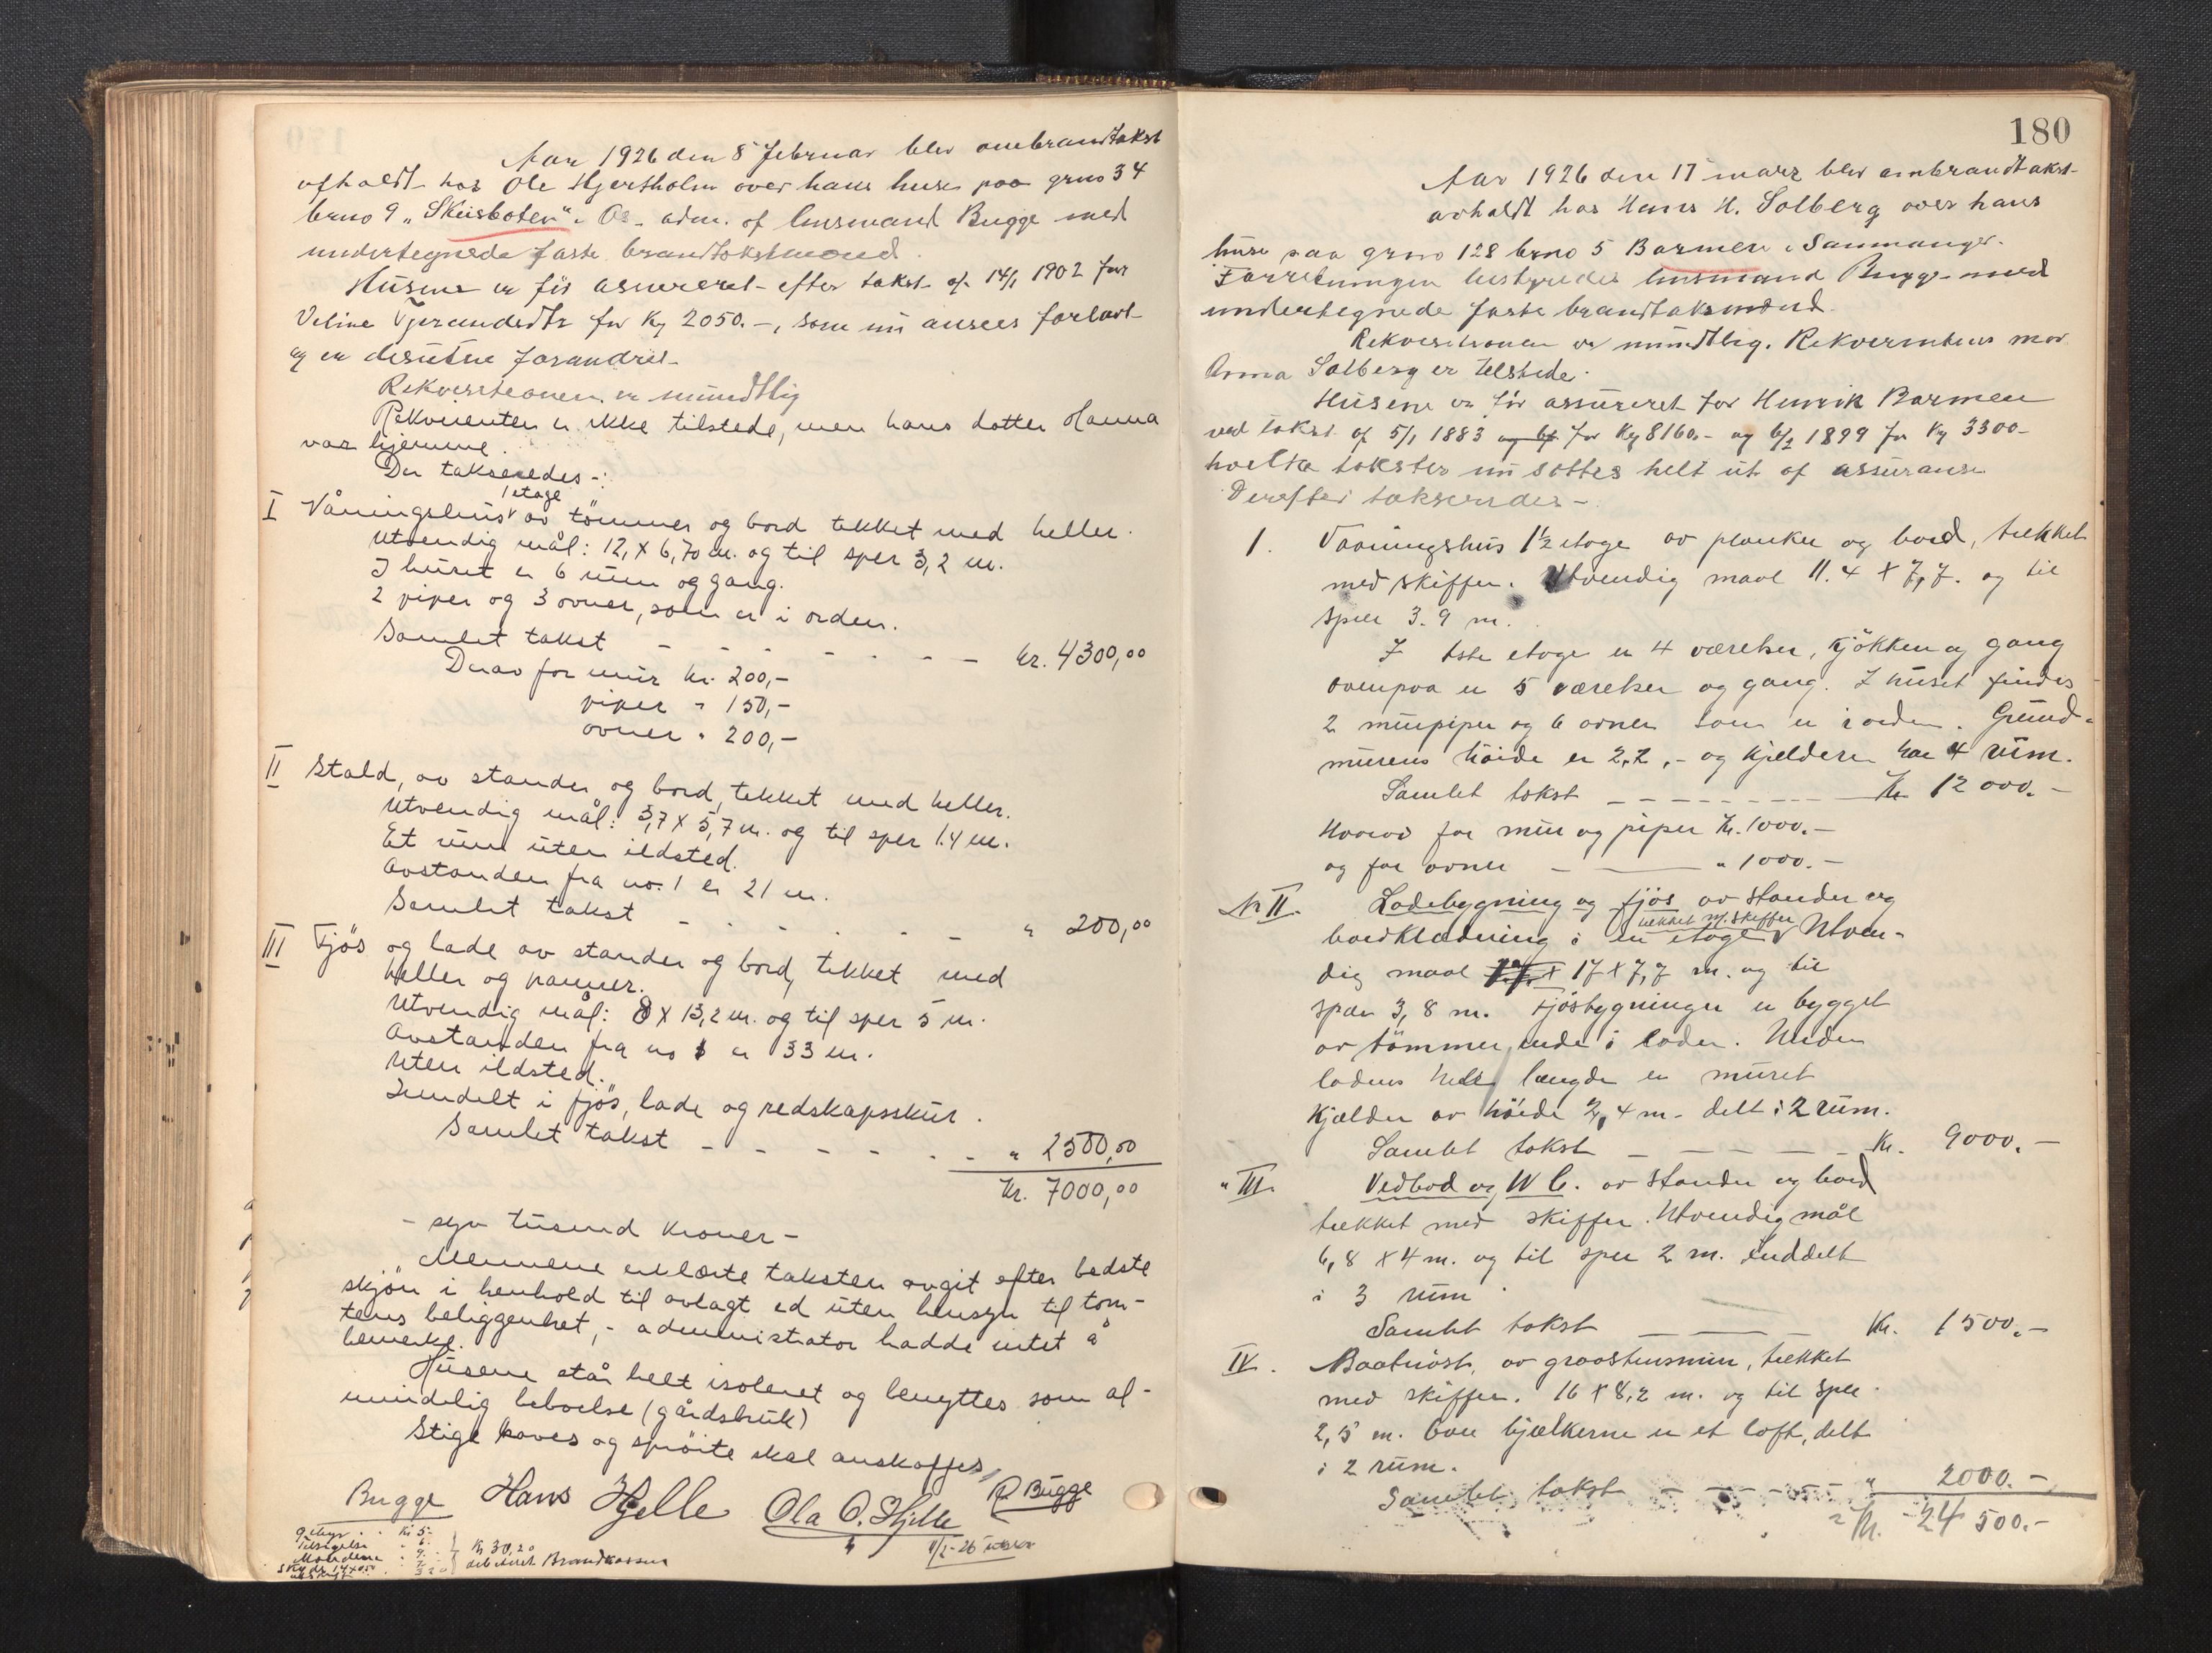 Aar 1926 den 8 februar blev ombrandtakst
afholdt hos Ole Hjertholm over hans huse paa grno 34
brno 9 „Skeisboten" i Os - adm. af lensmand Bugge med
undertegnede faste brandtakstmænd.
Husene er før assureret efter takst af 14/1 1902 for
Veline Tyssandedtr for Kr 2050.-, som nu ansees forlavt
og er desuten forandret-
Rekvisitionen er mundtlig
Rekvirenten er ikke tilstede, men hans datter Hanna
var hjemme.
Der takseredes-:
1 etage
I Våningshus av tömmer og bord tekket med heller.
Utvendig mål: 12, x 6,70 m. og til sper 3,2 m.
I huset er 6 rum og gang.
2 piper og 3 ovner, som er i orden.
Samlet takst - - - - - - - kr. 4300,00
Derav for mur kr. 200,-
piper " 150,-
ovner " 200,-
II Stald, av stander og bord, tekket med heller.
Utvendig mål: 3,7 x 5,7 m. og til sper 1.4 m.
Et rum uten ildsted.
Avstanden fra no. 1 er 21 m.
Samlet takst - - - - - - " 200,00
III Fjös og lade av stander og bord, tekket med
heller og panner.
Utvendig mål: 8 x 13,2 m. og til sper 5 m.
Avstanden fra no 1 er 33 m.
Uten ildsted.
Inndelt i fjös, lade og redskapsskur.
Samlet takst - - - - - - " 2500,00
Kr. 7000,00
- syv tusend kroner -
Mennene erklærte taksten avgit efter bedste
skjön i henhold til avlagt ed uten hensyn til tom-
tens beliggenhet, - administrator hadde intet å
bemerke.
Husene står helt isoleret og benyttes som al-
mindelig beboelse (gårdsbruk)
Stige haves og spröite skal anskaffes,
Bugge Hans Hjelle Ola O. Hjelle R Bugge
Gebyr . . Kr 5-
Tilsigelse " 6.-
Mændene " 9.- Kr 30,20
Skyds 14x050 " 7.- debiteret Brandkassen
Avskrift 3 20
180
Aar 1926 den 17 mars blev ombrandtakst
avholdt hos Hans H. Solberg over hans
huse paa grno 128 brno 5 Barmen i Samnanger.
Forretningen bestyredes lensmand Bugge med
undertegnede faste brandtaksmænd.
Rekvisitionen er mundtlig. Rekvirentens mor
Anna Solberg er tilstede.
Husene er før assureret for Henrik Barmen
ved takst af 5/1 1883 og 6/ for Kr 8160.- og 6/2 1899 for Kr 3300-
hvilke takster nu sættes helt ut af assuranse
Derefter takseredes-
1. Vaaningshus 1½ etage av planker og bord, tækket
med skiffer. Utvendig maal 11.4 x 7,7. og til
sper 3.9 m.
I 1ste etage er 4 værelser, kjökken og gang
ovenpaa er 5 værelser og gang. I huset findes
2 murpiper og 6 ovner som er i orden. Grund-
murens höide er 2,2,- og kjelderen har 4 rum.
Samlet takst - - - - - - - - Kr 12 000.-
Hvorav for mur og piper Kr. 1000.-
og for ovner - - " 1000.-
Nr II. Ladebygning og fjös av stander og
tækket m. skiffer
bordklædning i en etage Utven-
dig maal 17 x 17 x 7,7 m. og til
sper 3,8 m. Fjösbygningen er bygget
av tömmer inde i laden. Under
ladens hele længde er muret
kjælder av höide 2,4 m- delt i 2 rum.
Samlet takst - - - - - Kr. 9000.-
" III. Vedbod og W C. av stander og bord
tækket med skiffer. Utvendig mål
6,8 x 4 m. og til sper 2 m. inddelt
i 3 rum
Samlet takst - - - Kr. 1500.-
IV. Baatnöst, av graastensmur, tækket
med skiffer. 16 x 8,2 m. og til sper
2,5 m. Over bjælkerne er et loft, delt
i 2 rum.
Samlet takst - - - - - " 2000.-
Kr. 24 500.-